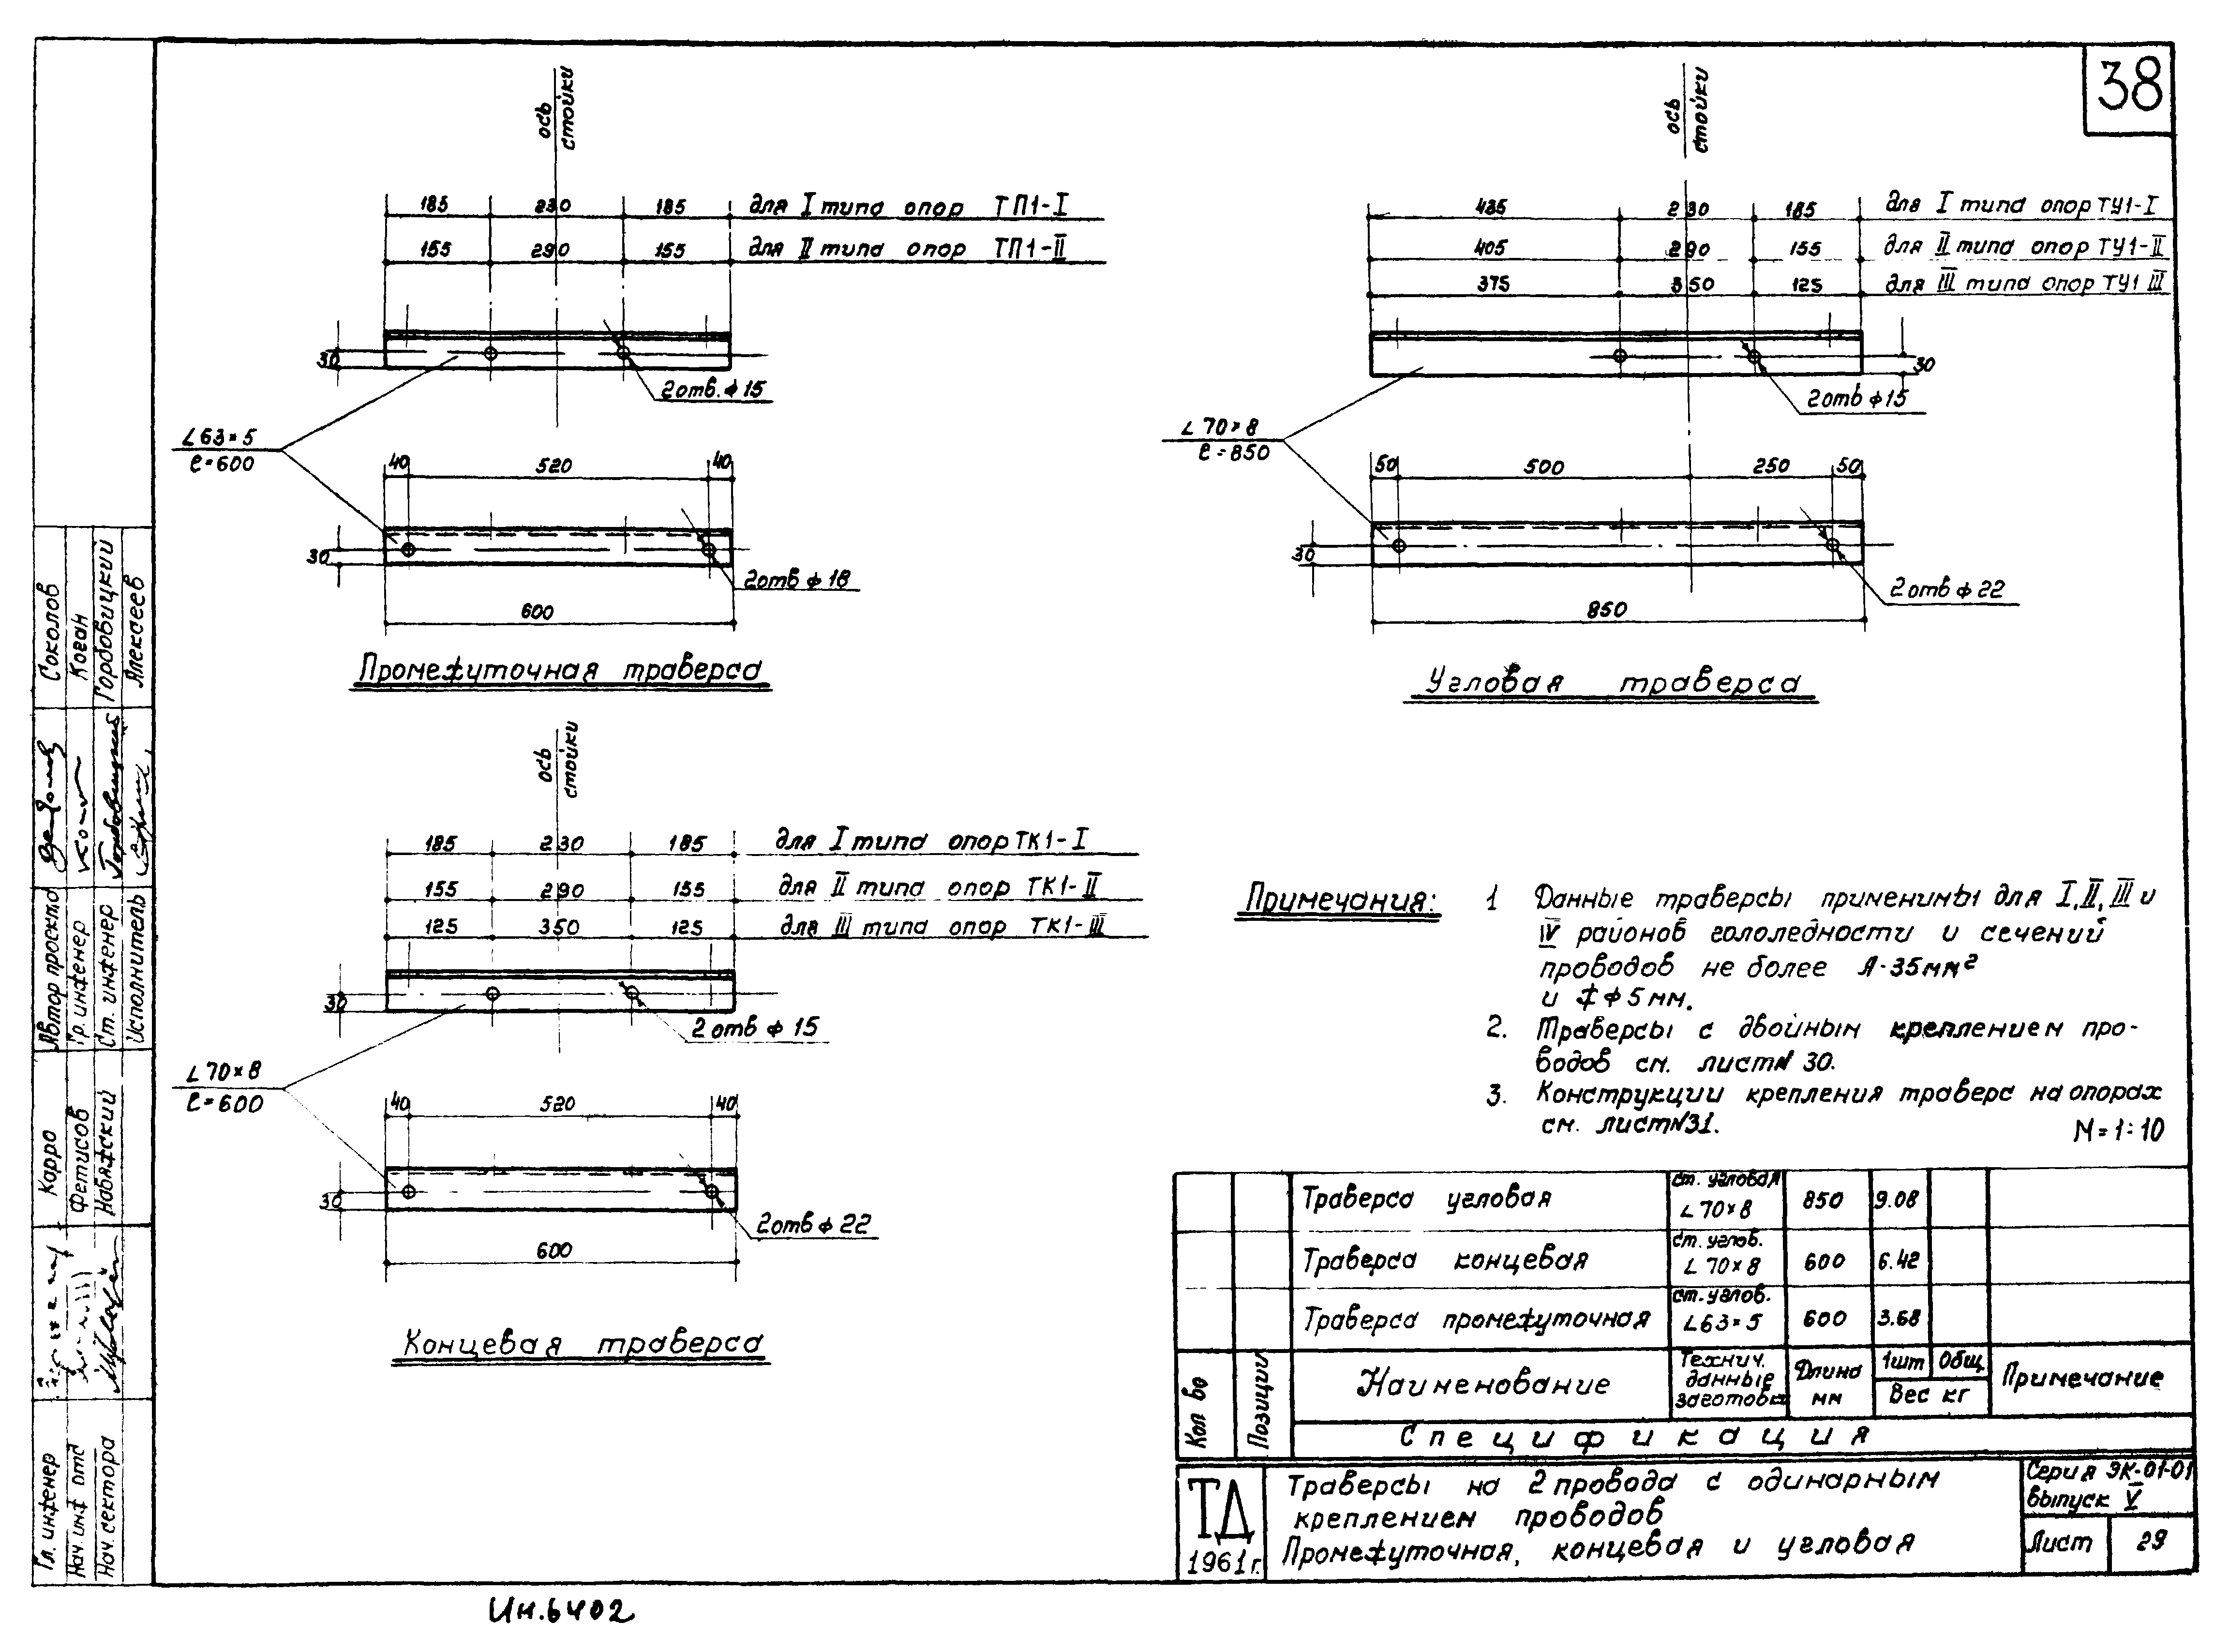 38
ось
стойки
185 230 185 для I типа опор ТП1-I
155 290 155 для II типа опор ТП1-II
30
2отв. ф 15
∠63×5
ℓ=600
40 520 40
30
2отв ф 18
600
Промежуточная траверса
ось
стойки
435 230 185 для I типа опор ТУ1-I
405 290 155 для II типа опор ТУ1-II
375 350 125 для III типа опор ТУ1 III
30
2отв ф15
∠70×8
ℓ=850
50 500 250 50
30
2отв ф 22
850
Угловая траверса
ось
стойки
185 230 185 для I типа опор ТК1-I
155 290 155 для II типа опор ТК1-II
125 350 125 для III типа опор ТК1-III
30
2 отв ф 15
∠70×8
ℓ=600
40 520 40
30
2отв ф 22
600
Концевая траверса
Примечания:
1 Данные траверсы применимы для I, II, III и
IV районов гололедности и сечений
проводов не более А-35мм²
и Ж ф 5 мм.
2. Траверсы с двойным креплением про-
водов см. лист N 30.
3. Конструкции крепления траверс на опорах
см. лист N31.
М=1:10
Траверса угловая ст. угловая ∠70×8 850 9.08
Траверса концевая ст. углов. ∠70×8 600 6.42
Траверса промежуточная ст. углов. ∠63×5 600 3.68
Кол во
Позиции
Наименование
Технич.
данные
заготовки
Длина
мм
1шт Общ.
Вес кг
Примечание
Спецификация
ТД
1961г.
Траверсы на 2 провода с одинарным
креплением проводов
Промежуточная, концевая и угловая
Серия ЭК-01-01
выпуск V
Лист 29
Соколов
Коган
Гордовицкий
Алексеев
Автор проекта
Гр. инженер
Ст. инженер
Исполнитель
Карро
Фетисов
Набяжский
Гл. инженер
Нач. инж отд
Нач. сектора
Ин.6402